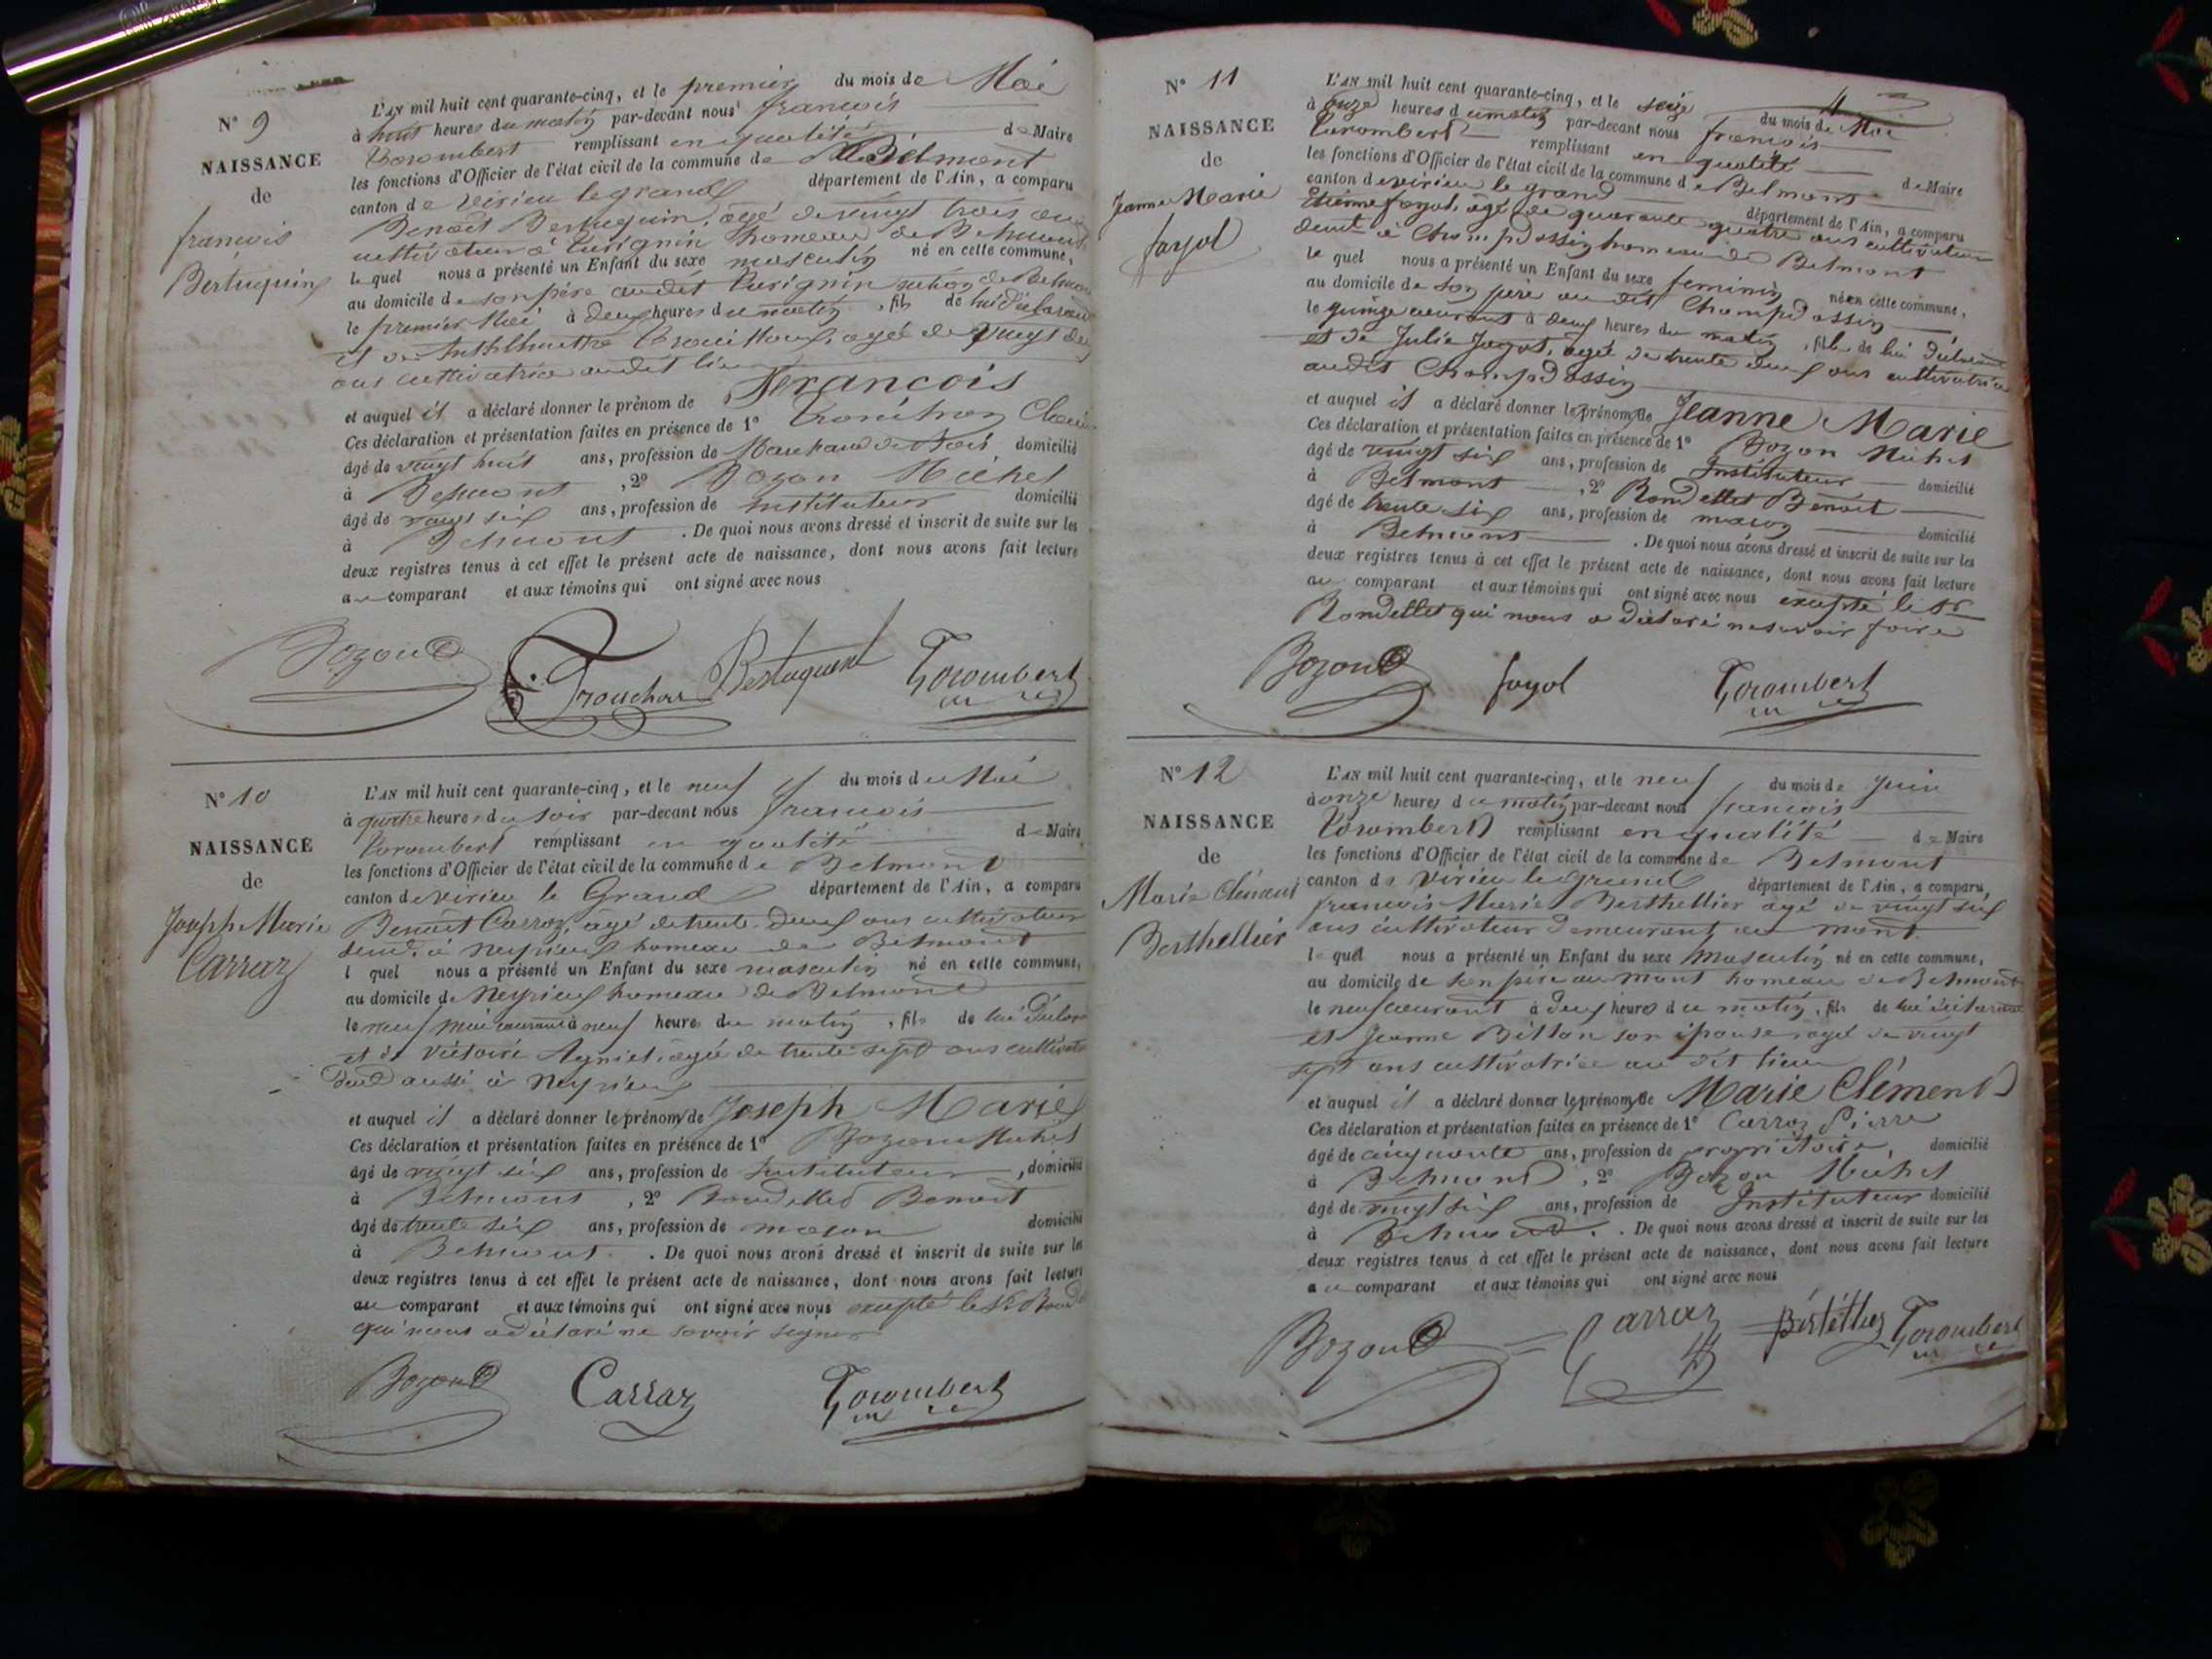 N° 9
NAISSANCE
de
françois
Bertuquin
L'AN mil huit cent quarante-cinq, et le premier du mois de Mai
à huit heures du matin par-devant nous françois
Torombert remplissant en qualité de Maire
les fonctions d'Officier de l'état civil de la commune de Belmont
canton de virieu le grand département de l'Ain, a comparu
Benoît Bertuquin, âgé de vingt trois ans
cultivateur à hameau de Belmont
lequel nous a présenté un Enfant du sexe masculin né en cette commune,
au domicile de son père audit section de Belmont
le premier Mai à deux heures du matin, fils de lui déclarant
et de agée de vingt deux
ans cultivatrice audit lieu
et auquel il a déclaré donner le prénom de François
Ces déclaration et présentation faites en présence de 1°
âgé de vingt huit ans, profession de domicilié
à Belmont, 2° Bozon Michel
âgé de vingt six ans, profession de instituteur domicilié
à Belmont. De quoi nous avons dressé et inscrit de suite sur les
deux registres tenus à cet effet le présent acte de naissance, dont nous avons fait lecture
au comparant et aux témoins qui ont signé avec nous
Bozon Bertuquin Torombert
N° 10
NAISSANCE
de
Joseph Marie
Carraz
L'AN mil huit cent quarante-cinq, et le neuf du mois de Mai
à quatre heures du soir par-devant nous françois
Torombert remplissant en qualité de Maire
les fonctions d'Officier de l'état civil de la commune de Belmont
canton de virieu le Grand département de l'Ain, a comparu
Benoît Carraz, agé de trente deux ans cultivateur
demt à Neyrieux hameau de Belmont
lequel nous a présenté un Enfant du sexe masculin né en cette commune,
au domicile de Neyrieux hameau de Belmont
le neuf mai courant à neuf heures du matin, fils de lui déclarant
et de Victoire agée de trente sept ans cultivatrice
demt aussi à Neyrieux
et auquel il a déclaré donner le prénom de Joseph Marie
Ces déclaration et présentation faites en présence de 1° Bozon Michel
âgé de vingt six ans, profession de Instituteur, domicilié
à Belmont, 2° Rondellet Benoit
âgé de trente six ans, profession de maçon domicilié
à Belmont. De quoi nous avons dressé et inscrit de suite sur les
deux registres tenus à cet effet le présent acte de naissance, dont nous avons fait lecture
au comparant et aux témoins qui ont signé avec nous excepté le Sr
qui nous a déclaré ne savoir signer
Bozon Carraz Torombert
N° 11
NAISSANCE
de
Jeanne Marie
fayol
L'AN mil huit cent quarante-cinq, et le seize du mois de Mai
à onze heures du matin par-devant nous françois
Torombert remplissant en qualité de Maire
les fonctions d'Officier de l'état civil de la commune de Belmont
canton de virieu le grand département de l'Ain, a comparu
Etienne fayol, agé de quarante quatre ans cultivateur
demt à Champdossin hameau de Belmont
lequel nous a présenté un Enfant du sexe feminin né en cette commune,
au domicile de son père au dit Champdossin
le quinze courant à deux heures du matin, fille de lui déclarant
et de Julie agée de trente deux ans cultivatrice
audit Champdossin
et auquel il a déclaré donner le prénom de Jeanne Marie
Ces déclaration et présentation faites en présence de 1° Bozon Michel
âgé de vingt six ans, profession de Instituteur domicilié
à Belmont, 2° Rondellet Benoit
âgé de trente six ans, profession de maçon domicilié
à Belmont. De quoi nous avons dressé et inscrit de suite sur les
deux registres tenus à cet effet le présent acte de naissance, dont nous avons fait lecture
au comparant et aux témoins qui ont signé avec nous excepté le Sr
Rondellet qui nous a déclaré ne savoir faire
Bozon fayol Torombert
N° 12
NAISSANCE
de
Marie Clément
Berthellier
L'AN mil huit cent quarante-cinq, et le neuf du mois de Juin
à onze heures du matin par-devant nous françois
Torombert remplissant en qualité de Maire
les fonctions d'Officier de l'état civil de la commune de Belmont
canton de Virieu le Grand département de l'Ain, a comparu
françois Marie Berthellier agé de vingt six
ans cultivateur demeurant au mont
lequel nous a présenté un Enfant du sexe Masculin né en cette commune,
au domicile de son père au mont hameau de Belmont
le neuf courant à deux heures du matin, fils de lui déclarant
et Jeanne Billon son épouse agé de vingt
sept ans cultivatrice au dit lieu
et auquel il a déclaré donner le prénom de Marie Clément
Ces déclaration et présentation faites en présence de 1° Carraz Pierre
âgé de cinquante ans, profession de propriétaire domicilié
à Belmont, 2° Bozon Michel
âgé de vingt six ans, profession de Instituteur domicilié
à Belmont. De quoi nous avons dressé et inscrit de suite sur les
deux registres tenus à cet effet le présent acte de naissance, dont nous avons fait lecture
au comparant et aux témoins qui ont signé avec nous
Bozon Carraz Bertéllier Torombert